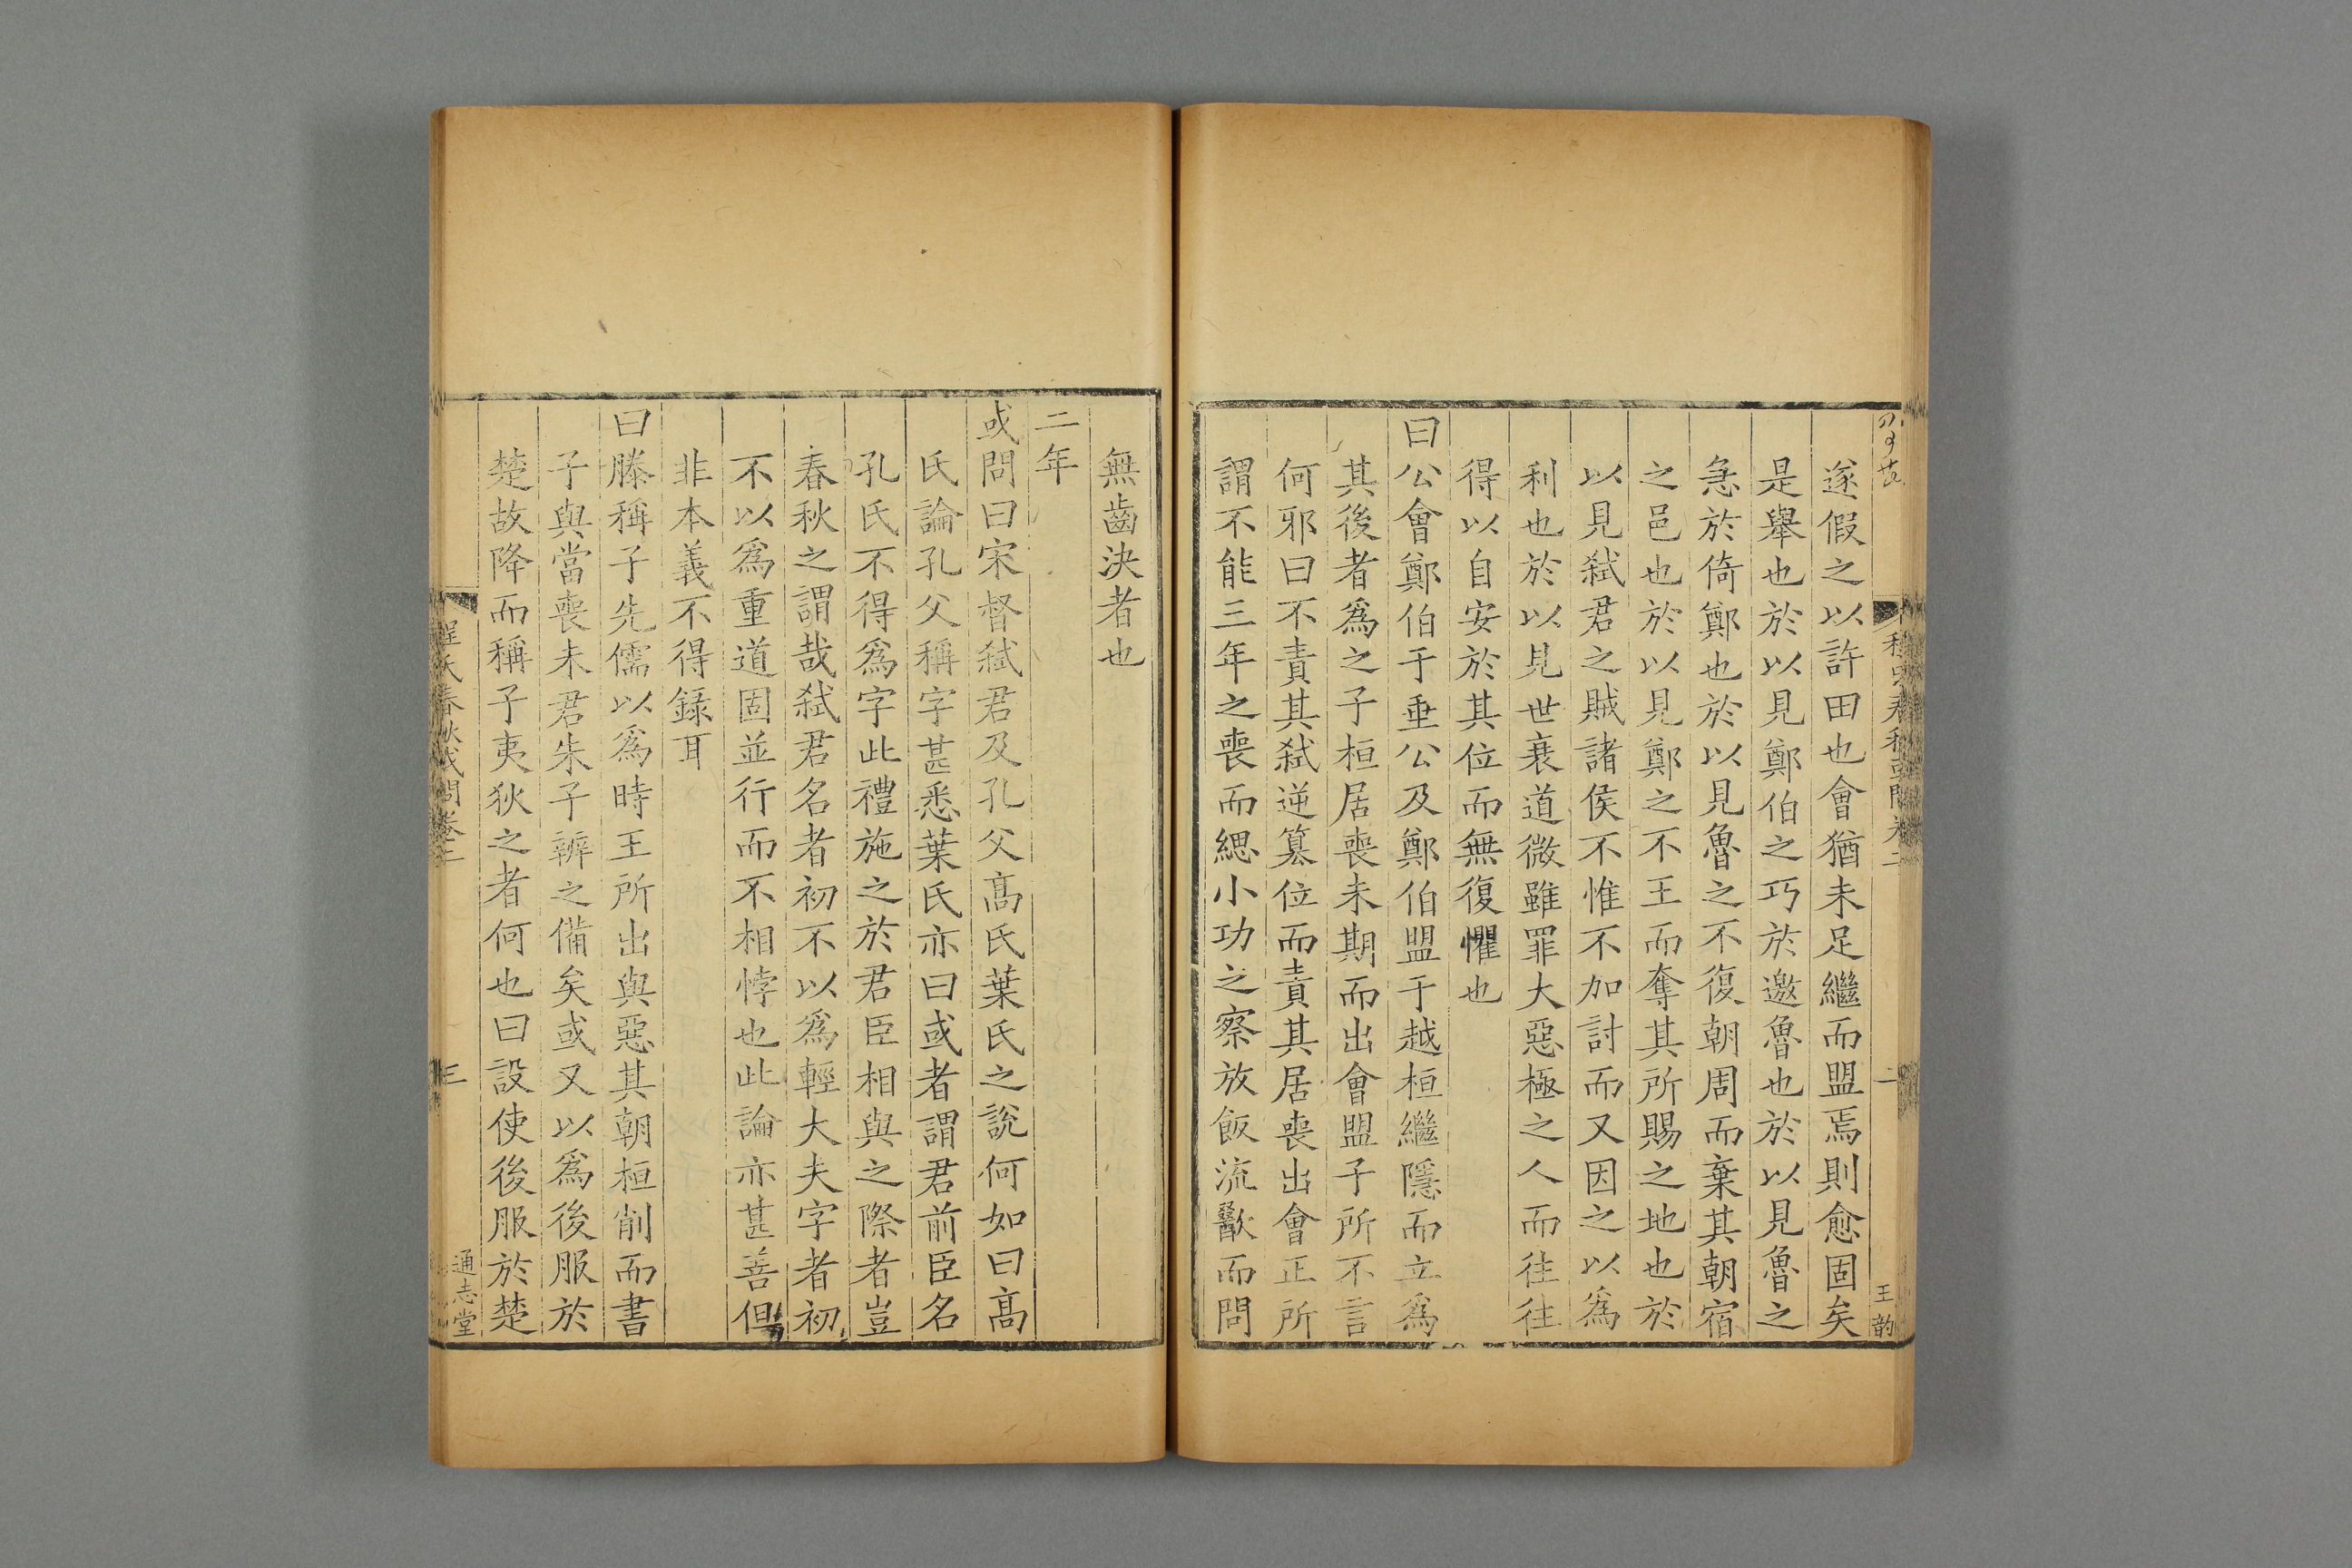 遂假之以許田也會猶未足繼而盟焉則愈固矣
是舉也於以見鄭伯之巧於邀魯也於以見魯之
急於倚鄭也於以見魯之不復朝周而棄其朝宿
之邑也於以見鄭之不王而奪其所賜之地也於
以見弑君之賊諸侯不惟不加討而又因之以為
利也於以見世衰道微雖罪大惡極之人而往往
得以自安於其位而無復懼也
曰公會鄭伯于垂公及鄭伯盟于越桓繼隱而立為
其後者為之子桓居喪未期而出會盟子所不言
何邪曰不責其弑逆篡位而責其居喪出會正所
謂不能三年之喪而緦小功之察放飯流歠而問
無齒決者也
二年
或問曰宋督弑君及孔父髙氏葉氏之說何如曰髙
氏論孔父稱字甚悉葉氏亦曰或者謂君前臣名
孔氏不得為字此禮施之於君臣相與之際者豈
春秋之謂哉弑君名者初不以為輕大夫字者初
不以為重道固並行而不相悖也此論亦甚善但
非本義不得録耳
曰滕稱子先儒以為時王所出與惡其朝桓削而書
子與當喪未君朱子辨之備矣或又以為後服於
楚故降而稱子夷狄之者何也曰設使後服於楚
程氏春秋或問卷二
三
通志堂